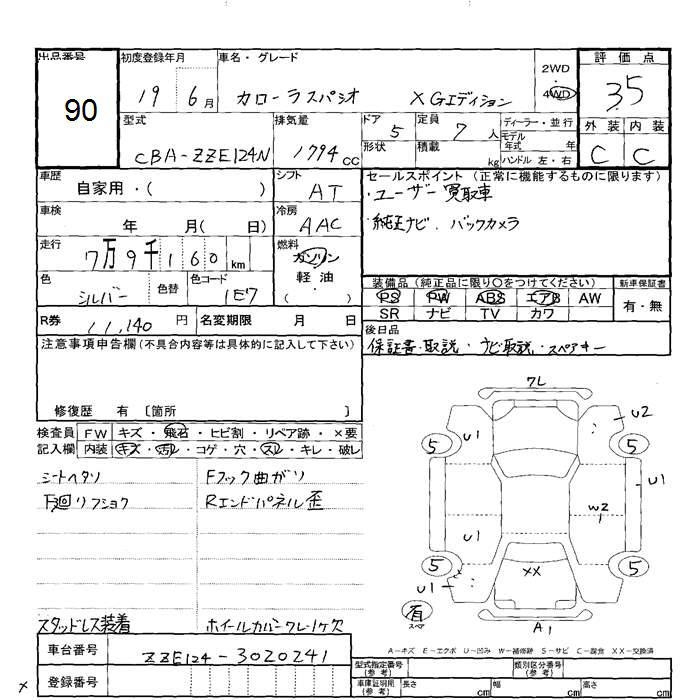 出品番号
90
初度登録年月
19 6月
車名・グレード
カローラスパシオ X Gエディション
2WD
4WD
評価点
3.5
外装 内装
C C
型式
CBA-ZZE124N
排気量
1794 cc
ドア
5
定員
7人
形状
積載
kg
ディーラー・並行
モデル年式 年
ハンドル 左・右
車歴
自家用・( )
シフト
AT
セールスポイント(正常に機能するものに限ります)
・ユーザー買取車
・純正ナビ、バックカメラ
車検
年 月( 日)
冷房
AAC
走行
7万9千160km
燃料
ガソリン
軽油
( )
色
シルバー
色替
色コード
1E7
装備品(純正品に限り○をつけてください)
新車保証書
PS PW ABS エアB AW
有・無
SR ナビ TV カワ
R券
11,140円
名変期限 月 日
後日品
保証書・取説・ナビ取説・スペアキー
注意事項申告欄(不具合内容等は具体的に記入して下さい)
修復歴 有 〔箇所 〕
検査員記入欄
FW キズ・飛石・ヒビ割・リペア跡・×要
内装 キズ・汚レ・コゲ・穴・スレ・キレ・破レ
シートヘタリ
Fフック曲ガリ
下廻リフショク
Rエンドパネル歪
スタッドレス装着
ホイールカバークレー1ケ欠
7L
U1
U2
5
5
U1
W2
U1
5
5
XX
U1
有
スペア
A1
A-キズ E-エクボ U-凹み W-補修跡 S-サビ C-腐食 XX-交換済
車台番号
ZZE124-3020241
登録番号
型式指定番号(参考)
類別区分番号(参考)
車庫証明用(参考)
長さ cm
幅 cm
高さ cm
×